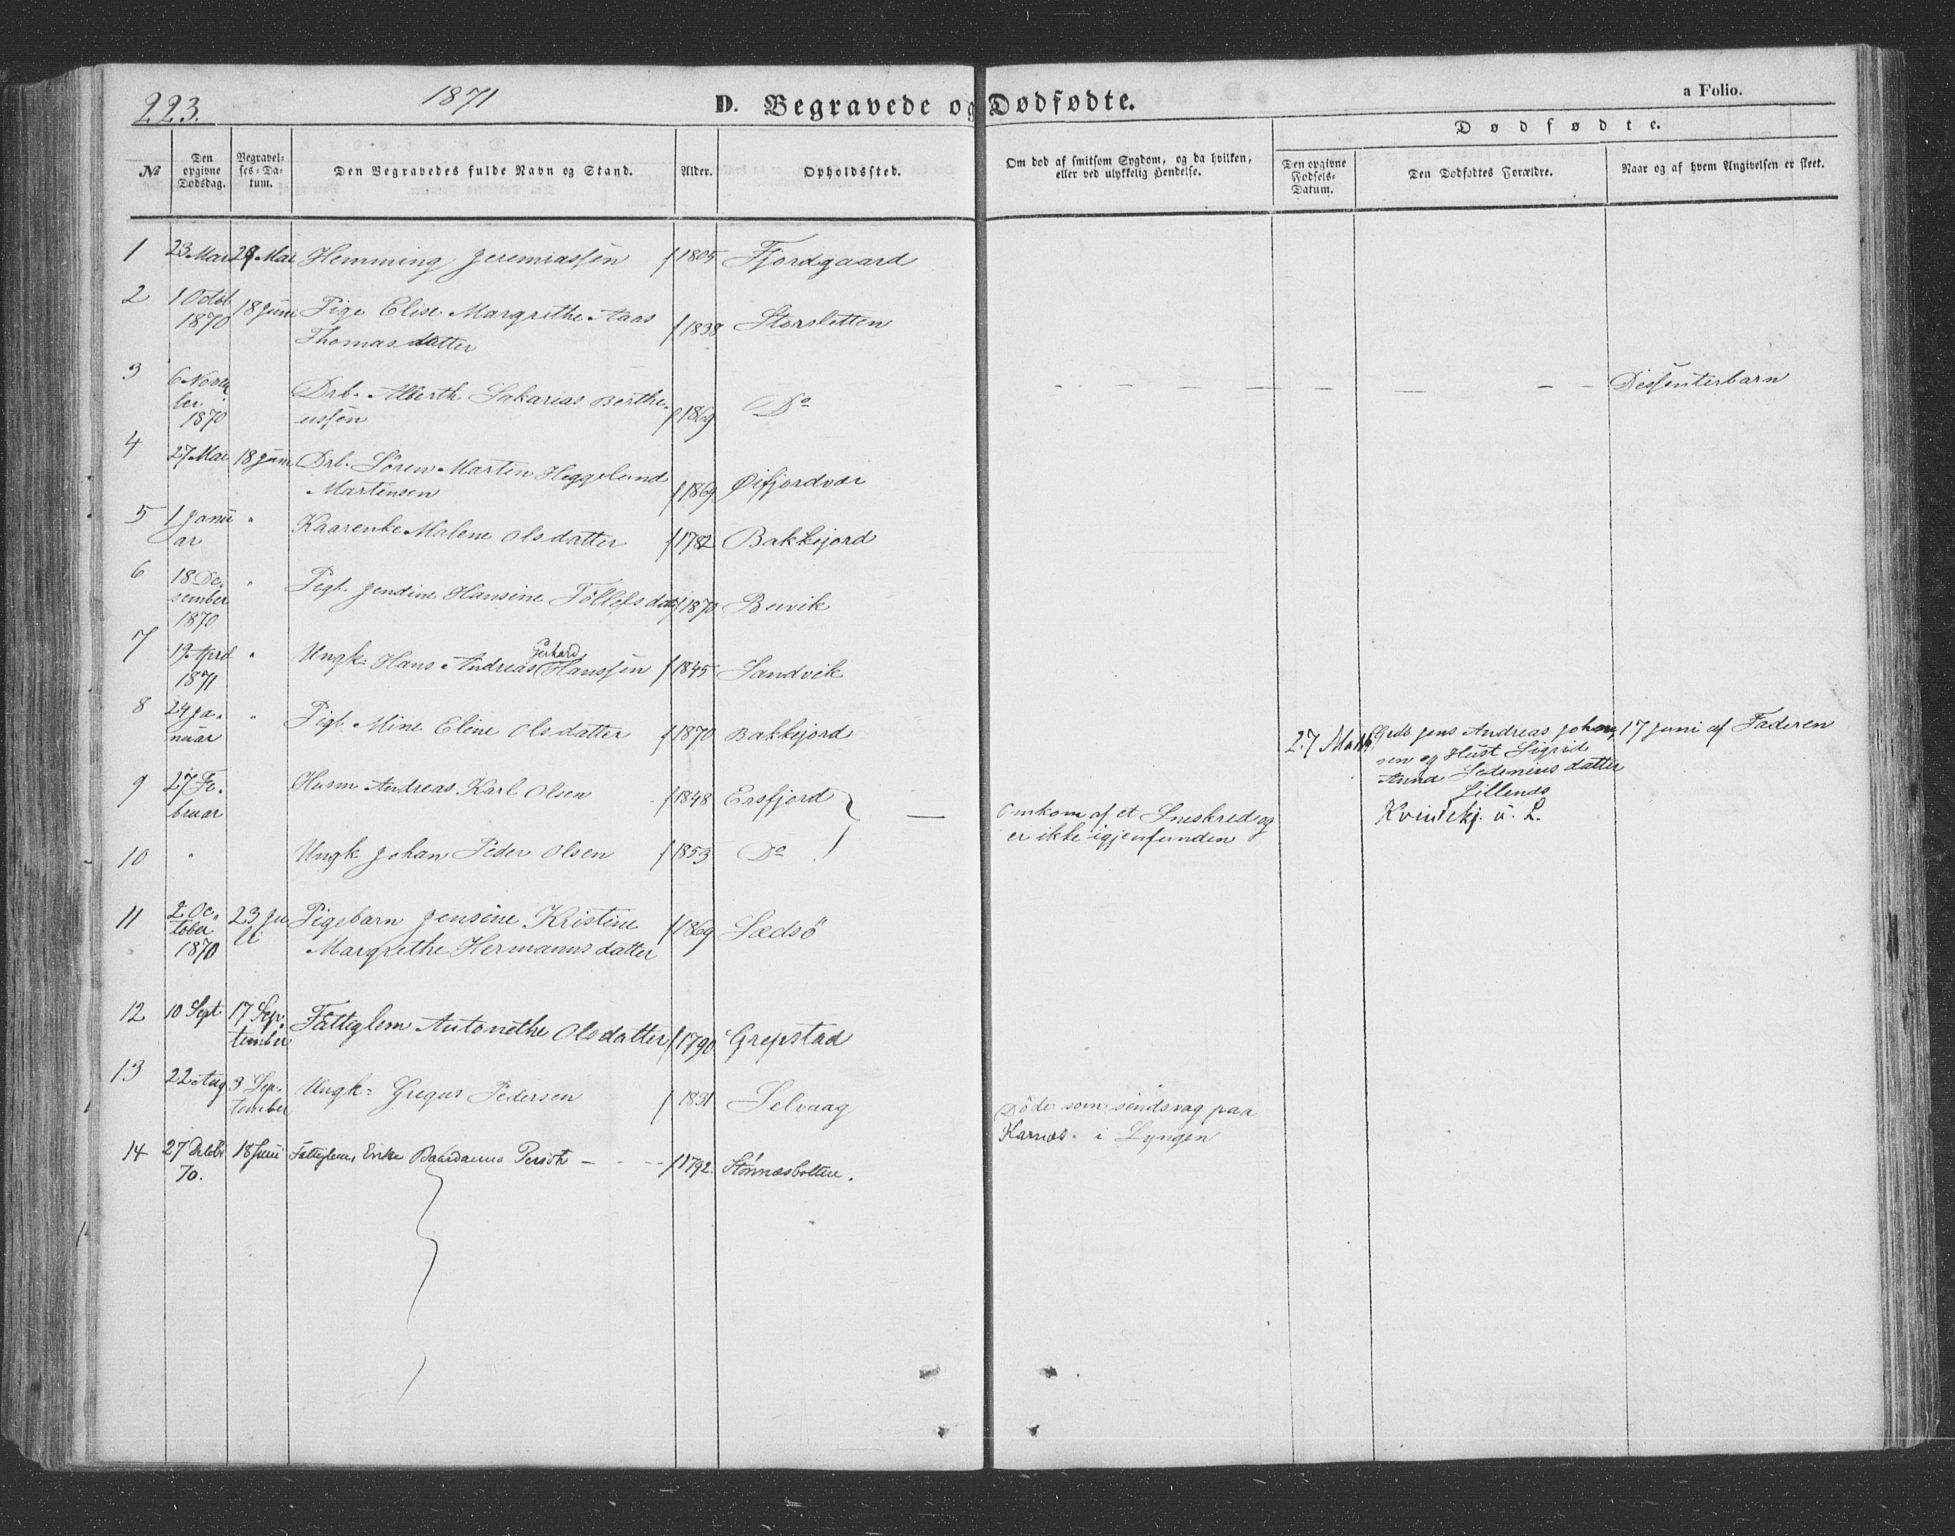 223.
1871
D. Begravede og Dødfødte.
a Folio.
Dødfødte.
No
Den opgivne Dødsdag.
Begravelses-Datum.
Den Begravedes fulde Navn og Stand.
Alder.
Opholdssted.
Om død af smitsom Sygdom, og da hvilken, eller ved ulykkelig Hendelse.
Den opgivne Fødsels-Datum.
Den Dødfødtes Forældre.
Naar og af hvem Angivelsen er skeet.
1 23 Mai 29 Mai Hemming Jeremiassen f 1805 Fjordgaard
2 1 Octob 1870 18 Juni Pige Elise Margrethe Aas
Thomasdatter f 1838 Storsletten
3 6 Novem ber 1870 Drb. Alberth Sakarias Berthe-
ussen f 1869 Do - - - - - - - - Dissenterbarn
4 27 Mai 18 Juni Drb. Sören Martin Heggelund
Martensen f 1869 Øifjordvær
5 1 Janu ar " Kaarenke Malene Olsdatter f 1782 Bakkejord
6 18 De- sember 1870 " Pigb. Jendine Hansine Töllefsdat f 1870 Buvik
7 19 April 1871 " Ungk. Hans Andreas Gerhard Hanssen f 1845 Sandvik
8 24 Ja- nuar " Pigb. Mine Elene Olsdatter f 1870 Bakkejord
27 Gads Jens Andreas Johan- 17 Juni af Faderen
sen og Hust Sigrid
Anna Sedeniusdatter
Lillends
Kvindekj. u. L.
9 27 Fe- bruar Husm Andreas Karl Olsen f 1848 Ersfjord
10 " Ungk Johan Peder Olsen f 1853 Do
— Omkom af et Sneskred og
er ikke igjenfunden
11 2 Oc- tober 1870 23 Ju li Pigebarn Jensine Kristine
Margrethe Hermannsdatter f 1869 Sædsö
12 10 Sept 17 Sep- tember Fattiglem Antonethe Olsdatter f 1790 Grepstad
13 22 Aug 3 Sep- tember Ungk: Gregus Pedersen f 1831 Selvaag
Döde som sindsvag paa
Karnæs i Lyngen
14 27 Octobr 70. 18 Juni Fattiglem Erike Baardanna Persdt — - - f 1792. Stönnesbotten.